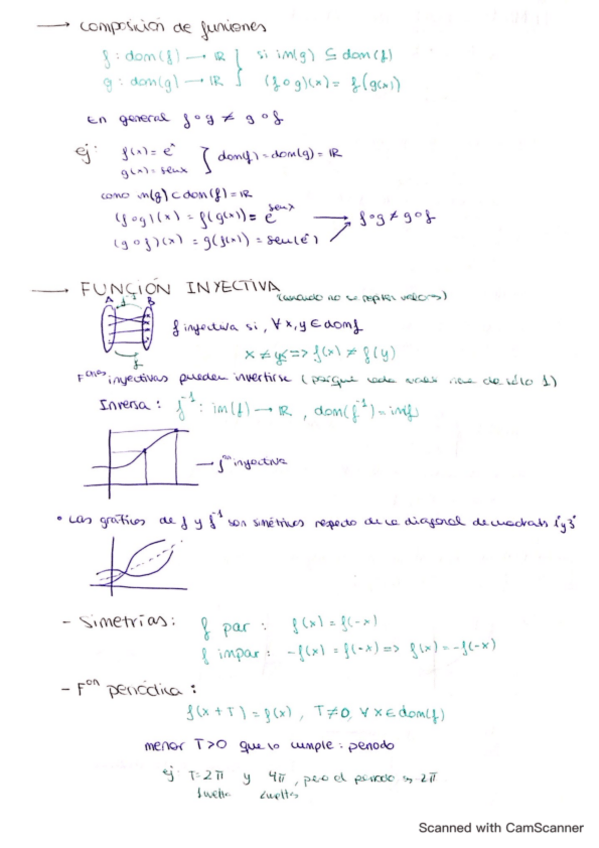 → composición de funciones
f: dom(f) → ℝ } si im(g) ⊆ dom(f)
g: dom(g) → ℝ } (f∘g)(x) = f(g(x))
En general f∘g ≠ g∘f
ej: f(x) = eˣ } dom(f) = dom(g) = ℝ
g(x) = senx
como im(g) ⊂ dom(f) = ℝ
(f∘g)(x) = f(g(x)) = e^senx → f∘g ≠ g∘f
(g∘f)(x) = g(f(x)) = sen(eˣ)
→ FUNCIÓN INYECTIVA
(cuando no se repiten valores)
A f⁻¹ B
f inyectiva si, ∀x,y ∈ domf
x ≠ y => f(x) ≠ f(y)
f
Fᵒⁿᵉˢ inyectivas pueden invertirse (porque cada valor viene de sólo 1)
Inversa: f⁻¹: im(f) → ℝ, dom(f⁻¹) = imf
→ fᵒⁿ inyectiva
• Las gráficas de f y f⁻¹ son simétricas respecto de la diagonal de cuadrats 1º y 3º
- Simetrías: f par: f(x) = f(-x)
f impar: -f(x) = f(-x) => f(x) = -f(-x)
- Fᵒⁿ periódica:
f(x+T) = f(x), T≠0, ∀x∈dom(f)
menor T>0 que lo cumple: periodo
ej: T=2π y 4π, pero el periodo es 2π
1 vuelta 2 vueltas
Scanned with CamScanner